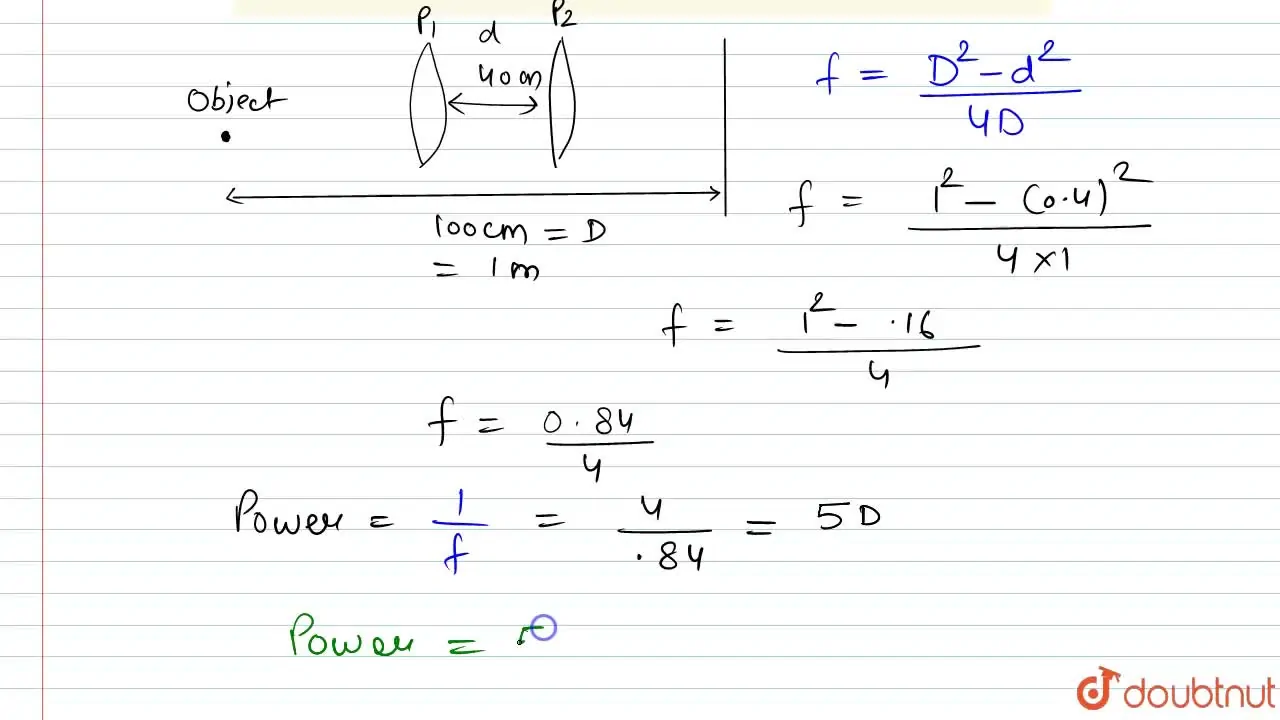 P1 d P2
40cm
Object
100cm = D
= 1m
f = D² - d² / 4D
f = 1² - (0.4)² / 4 × 1
f = 1² - .16 / 4
f = 0.84 / 4
Power = 1 / f = 4 / .84 = 5D
Power =
doubtnut